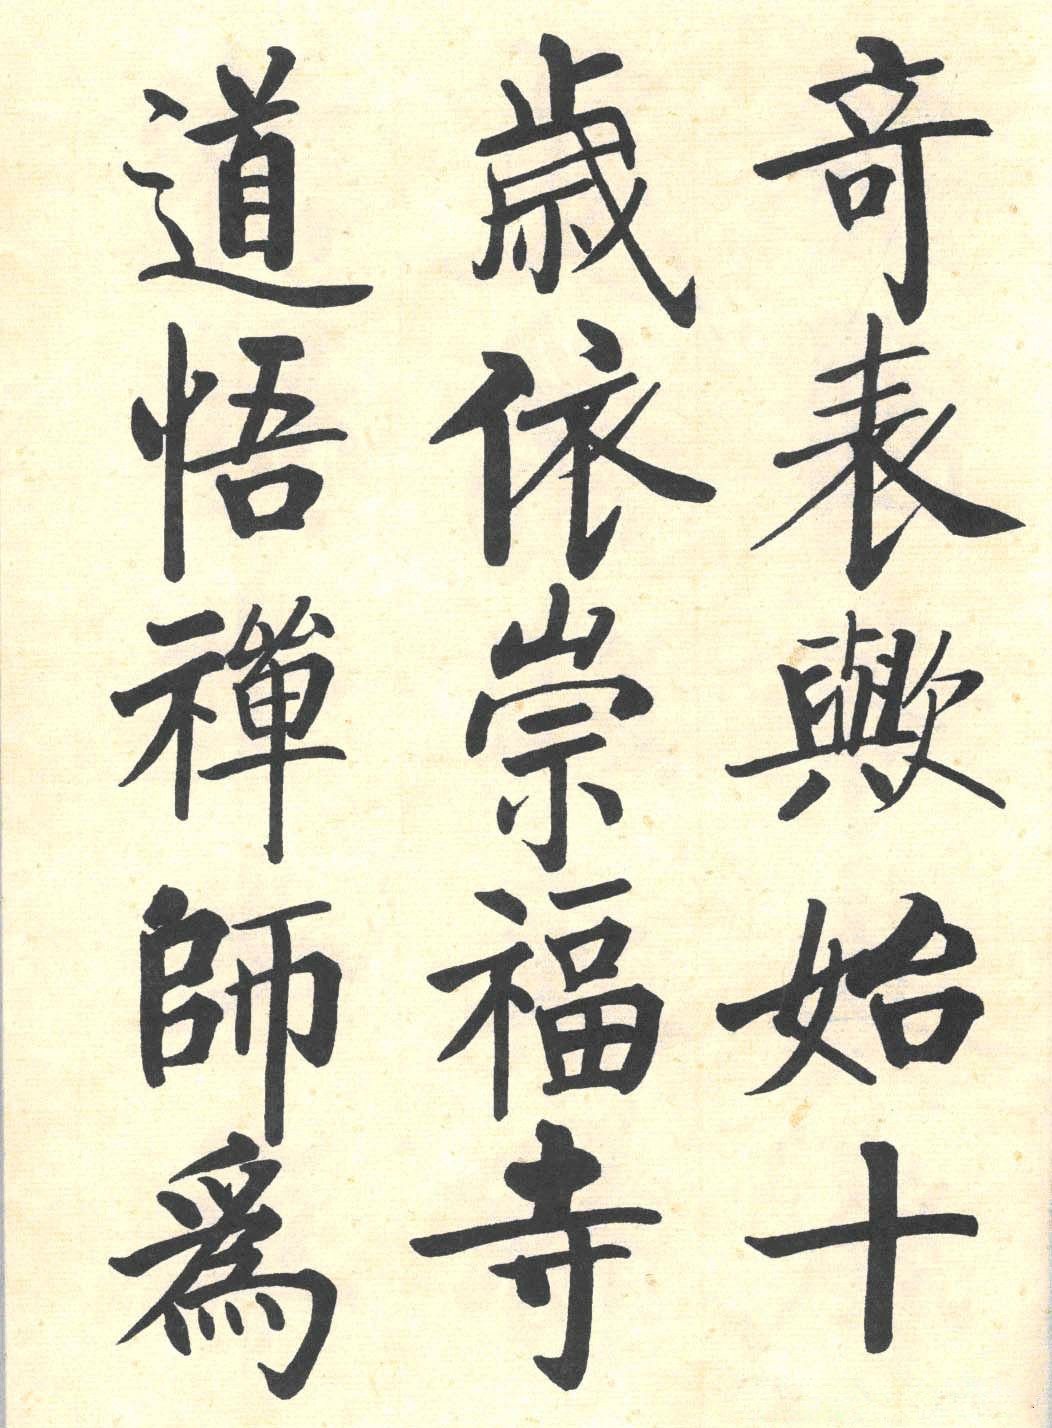 奇表歟始十
歲依崇福寺
道悟禪師爲